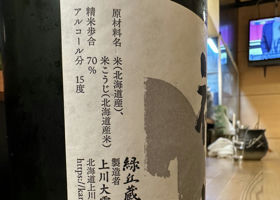 原材料名 米(北海道産)、
米こうじ(北海道産米)
精米歩合 70%
アルコール分 15度
緑丘蔵
製造者
上川大雪
北海道上川
https://ka